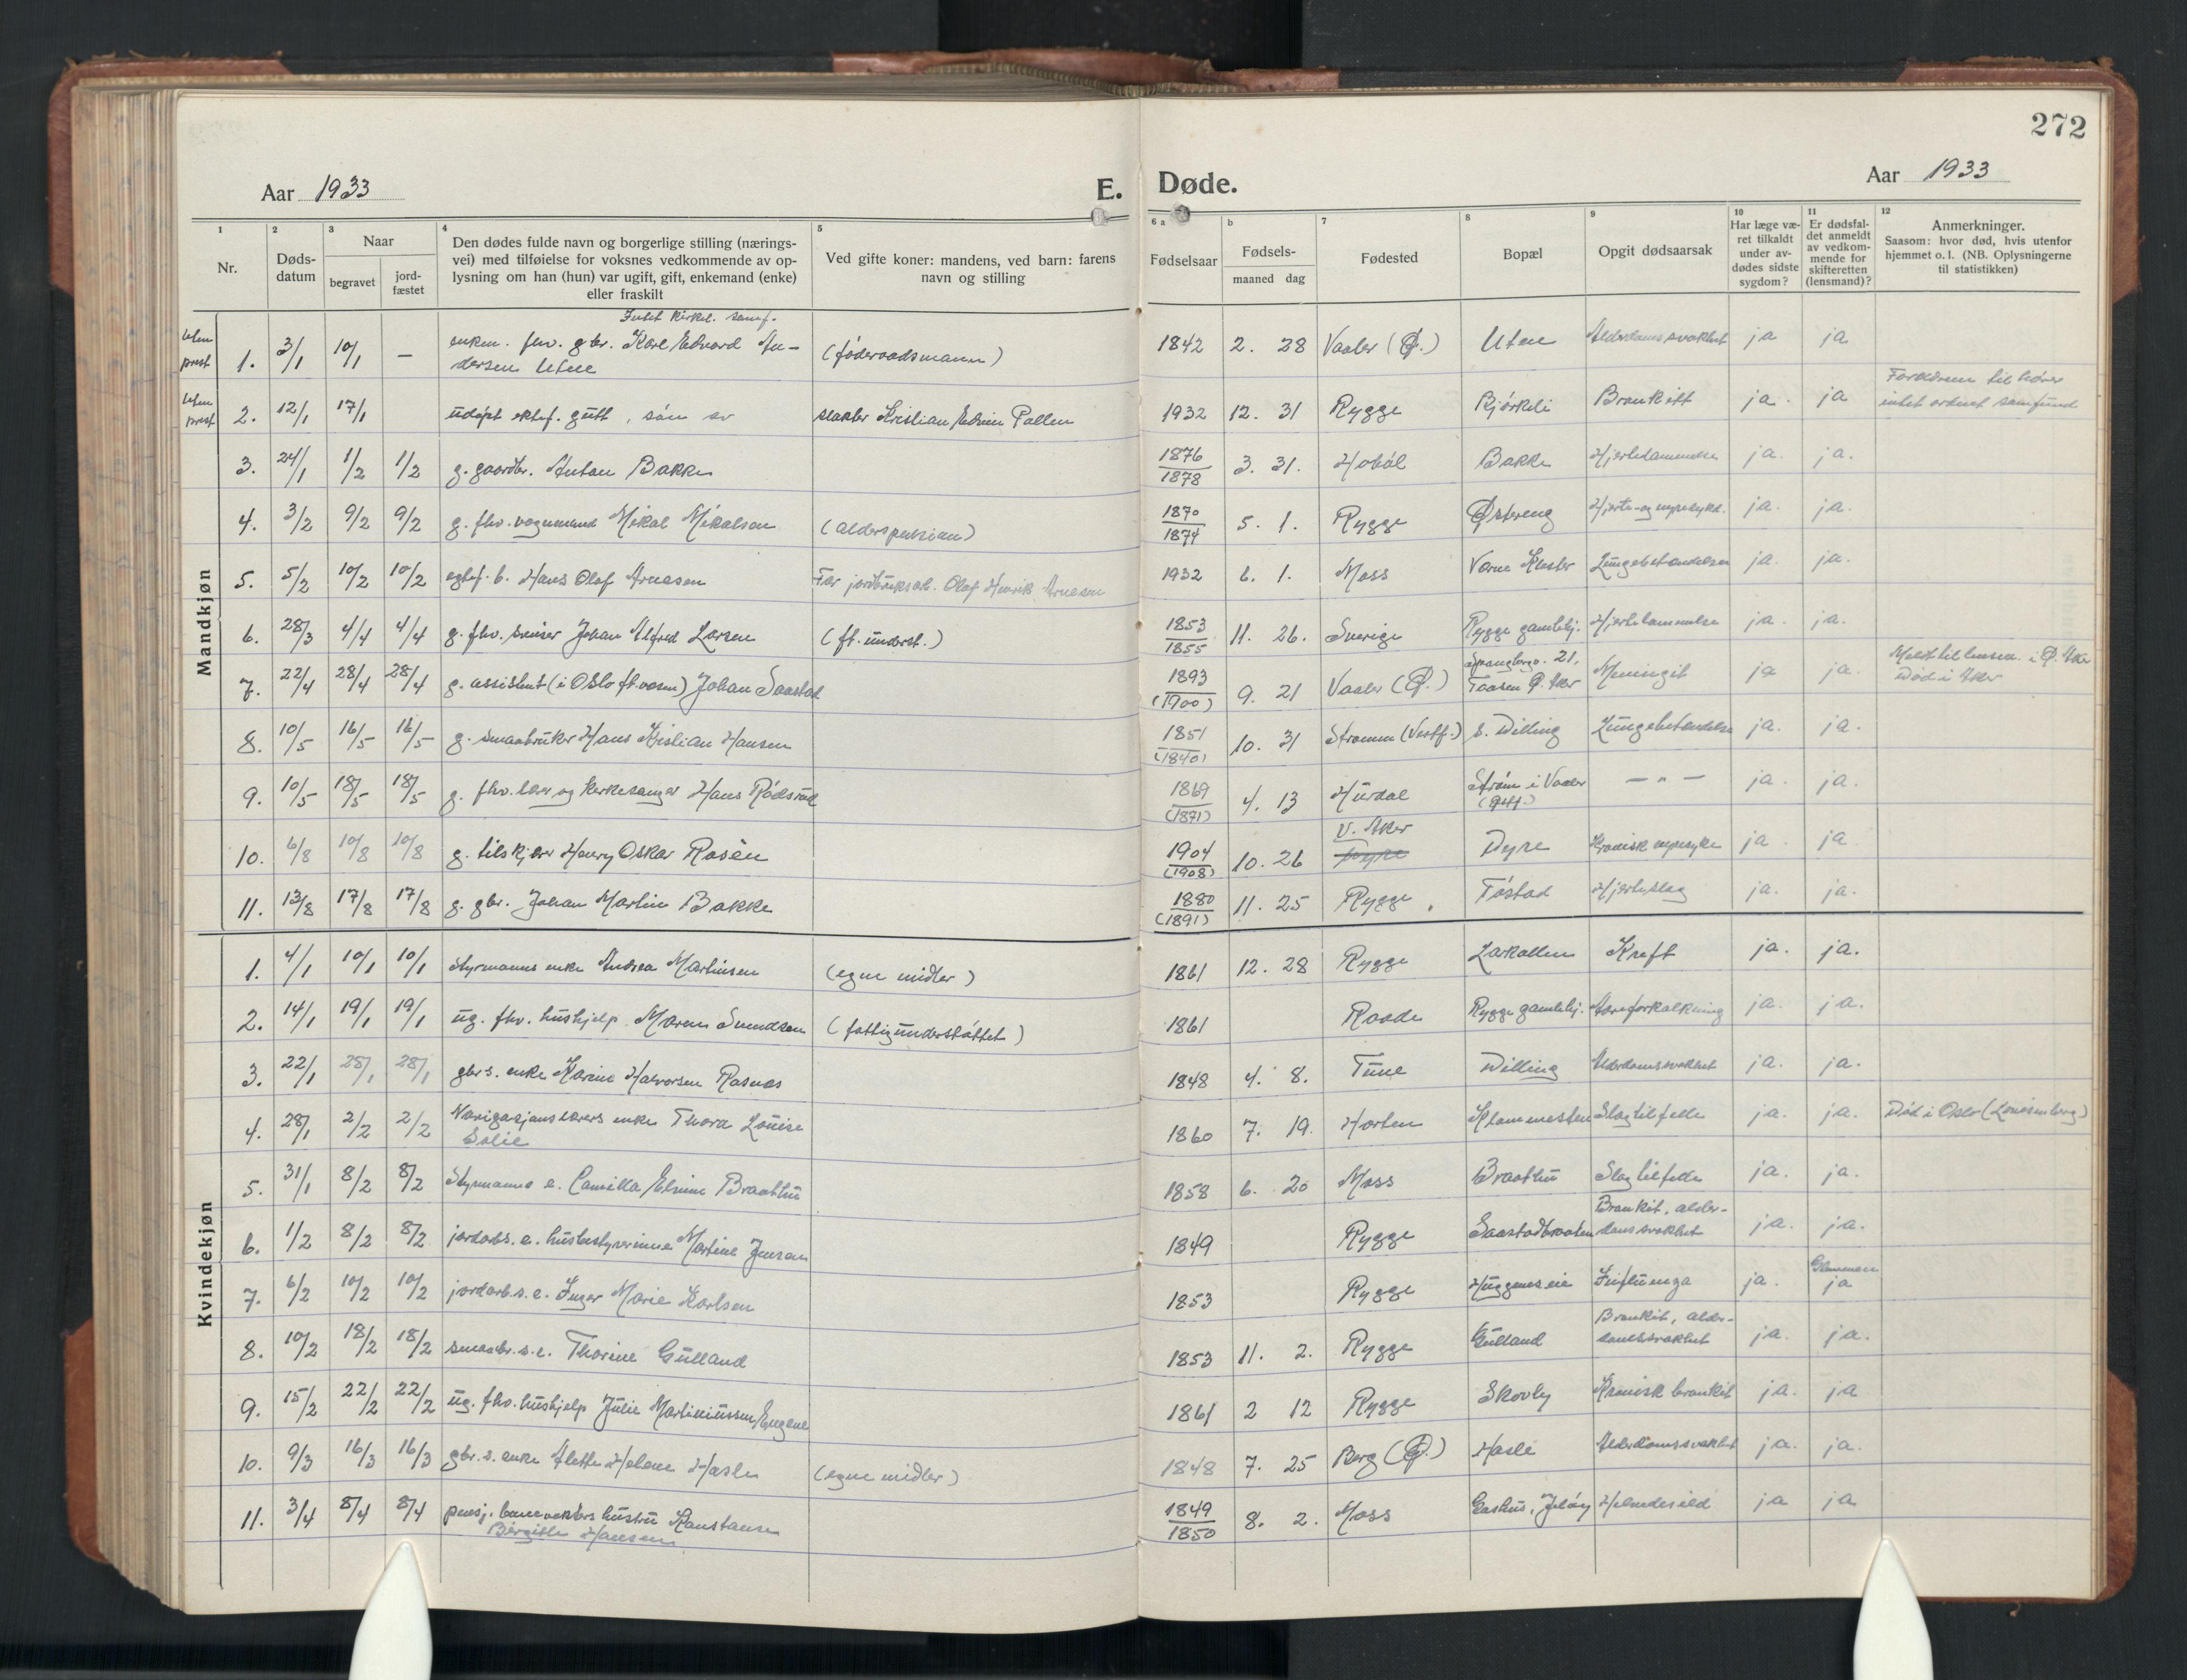 272
Aar 1933
E. Døde.
Aar 1933
1 Nr.
2 Døds-datum
3 Naar
begravet
jord-fæstet
4 Den dødes fulde navn og borgerlige stilling (nærings-
vei) med tilføielse for voksnes vedkommende av op-
lysning om han (hun) var ugift, gift, enkemand (enke)
eller fraskilt
5 Ved gifte koner: mandens, ved barn: farens
navn og stilling
6 a Fødselsaar
b Fødsels-
maaned dag
7 Fødested
8 Bopæl
9 Opgit dødsaarsak
10 Har læge væ-
ret tilkaldt
under av-
dødes sidste
sygdom?
11 Er dødsfal-
det anmeldt
av vedkom-
mende for
skifteretten
(lensmand)?
12 Anmerkninger.
Saasom: hvor død, hvis utenfor
hjemmet o. l. (NB. Oplysningerne
til statistikken)
Mandkjøn
Intet kirkel. samf.
uten prest 1. 3/1 10/1 — enkem. fhv. gbr. Karl Edvard An-
dersen Utne (føderaadsmann) 1842 2. 28 Vaaler (Ø.) Utne Alderdomssvakhet ja ja
uten prest 2. 12/1 17/1 udøpt ektef. gutt, søn av Kristian Edvin Pallen 1932 12. 31 Rygge Bjørkeli Bronkitt ja. ja Forældrene tilhører
intet ordnet samfund
3. 24/1 1/2 1/2 g. gaardbr. Anton Bakke 1876 3. 31. Hobøl Bakke Hjertelammelse ja. ja.
1878
4. 3/2 9/2 9/2 g. fhv. vognmand Mikal Mikalsen (alderspensjon) 1870 5. 1. Rygge Østereng Hjerte- og nyresykd. ja. ja.
1874
5. 5/2 10/2 10/2 egtef. b. Hans Olaf Arnesen Far jordbruksarb. Olaf Henrik Arnesen 1932 6. 1. Moss Værne Kloster Lungebetændelse ja. ja.
6. 28/3 4/4 4/4 g. fhv. sveiser Johan Alfred Larsen (ft. underst.) 1853 11. 26. Sverige Rygge gamlehj. Hjertelammelse ja. ja.
1855
7. 22/4 28/4 28/4 g. assistent (i Oslo ft.vesen) Johan Saastad 1893 9. 21 Vaaler (Ø.) Spangbergv. 21,
Taasen Ø. Aker Meningit ja ja. Meldt til lensm. i Ø. Aker
Død i Aker
(1900)
8. 10/5 16/5 16/5 g. smaabruker Hans Kristian Hansen 1851 10. 31 Strømm (Vestf.) S. Dilling Lungebetændelse ja. ja.
(1840)
9. 10/5 18/5 18/5 g. fhv. lærer og kirkesanger Hans Rødsrud 1869 4. 13 Hurdal Strøm i Vaaler
(Østf.) — " — ja. ja.
(1871)
10. 6/8 10/8 10/8 g. tilskjærer Henry Oskar Rosèn 1904 10. 26 V. Aker
Dyre Dyre Kronisk nyresyke ja. ja
(1908)
11. 13/8 17/8 17/8 g. gbr. Johan Martin Bakke 1880 11. 25 Rygge. Tøstad Hjerteslag ja. ja.
(1891)
Kvindekjøn
1. 4/1 10/1 10/1 Styrmanns enke Andrea Martinsen (egne midler) 1861 12. 28 Rygge Larkollen Kreft ja. ja.
2. 14/1 19/1 19/1 ug. fhv. hushjelp Maren Svendsen (fattigunderstøttet) 1861 Raade Rygge gamlehj. Aareforkalkning ja. ja.
3. 22/1 28/1 28/1 gbr s. enke Karine Halvorsen Rosnæs 1848 4. 8. Tune Dilling Alderdomssvakhet ja. ja.
4. 28/1 2/2 2/2 Navigasjonslærers enke Thora Louise
Solie 1860 7. 19. Horten Klommesten Slagtilfelle ja. ja. Død i Oslo (Lovisenberg)
5. 31/1 8/2 8/2 Styrmanns e. Camilla Elvine Braathu 1858 6. 20 Moss Braathu Slagtilfelle ja. ja.
6. 1/2 8/2 8/2 jordarb.s. e. husbestyrerinne Martine Jensen 1849 Rygge Saastadbraaten Bronkit, alder-
domssvakhet ja. ja.
7. 6/2 10/2 10/2 jordarb.s. e. Inger Marie Karlsen 1853 Rygge Huggenes eie Influenza ja. Glemmen
ja
8. 10/2 18/2 18/2 smaabr.s. e. Thorine Gulland 1853 11. 2. Rygge Gulland Bronkit, alder-
domssvakhet ja. ja.
9. 15/2 22/2 22/2 ug. fhv. hushjelp Julie Martiniussen Engene 1861 2 12 Rygge Skovly Kronisk bronkit ja. ja
10. 9/3 16/3 16/3 gbr.s. enke Alette Helene Hasle (egne midler) 1848 7. 25 Berg (Ø.) Hasle Alderdomssvakhet ja. ja.
11. 3/4 8/4 8/4 pensj. banevokters hustru Konstanse
Birgitte Hansen 1849 8. 2. Moss Jeløy ja ja
1850